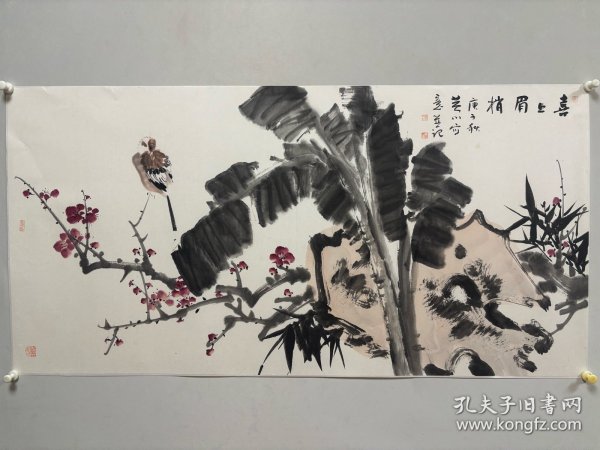 喜上眉梢
庚子秋
芝川写
意并记
孔夫子旧书网
www.kongfz.com